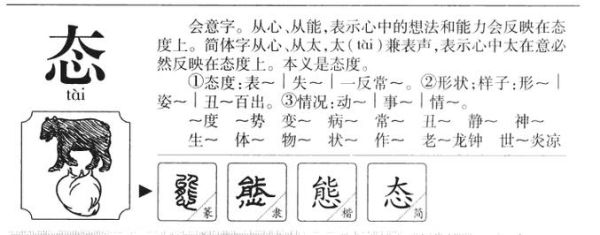 态
tài
会意字。从心、从能,表示心中的想法和能力会反映在态
度上。简体字从心、从太,太(tài)兼表声,表示心中太在意必
然反映在态度上。本义是态度。
①态度:表～｜失～｜一反常～。②形状;样子:形～｜
姿～｜丑～百出。③情况:动～｜事～｜情～。
～度 ～势 变～ 病～ 常～ 丑～ 静～ 神～
生～ 体～ 物～ 状～ 作～ 老～龙钟 世～炎凉
態 篆 態 隶 態 楷 态 简